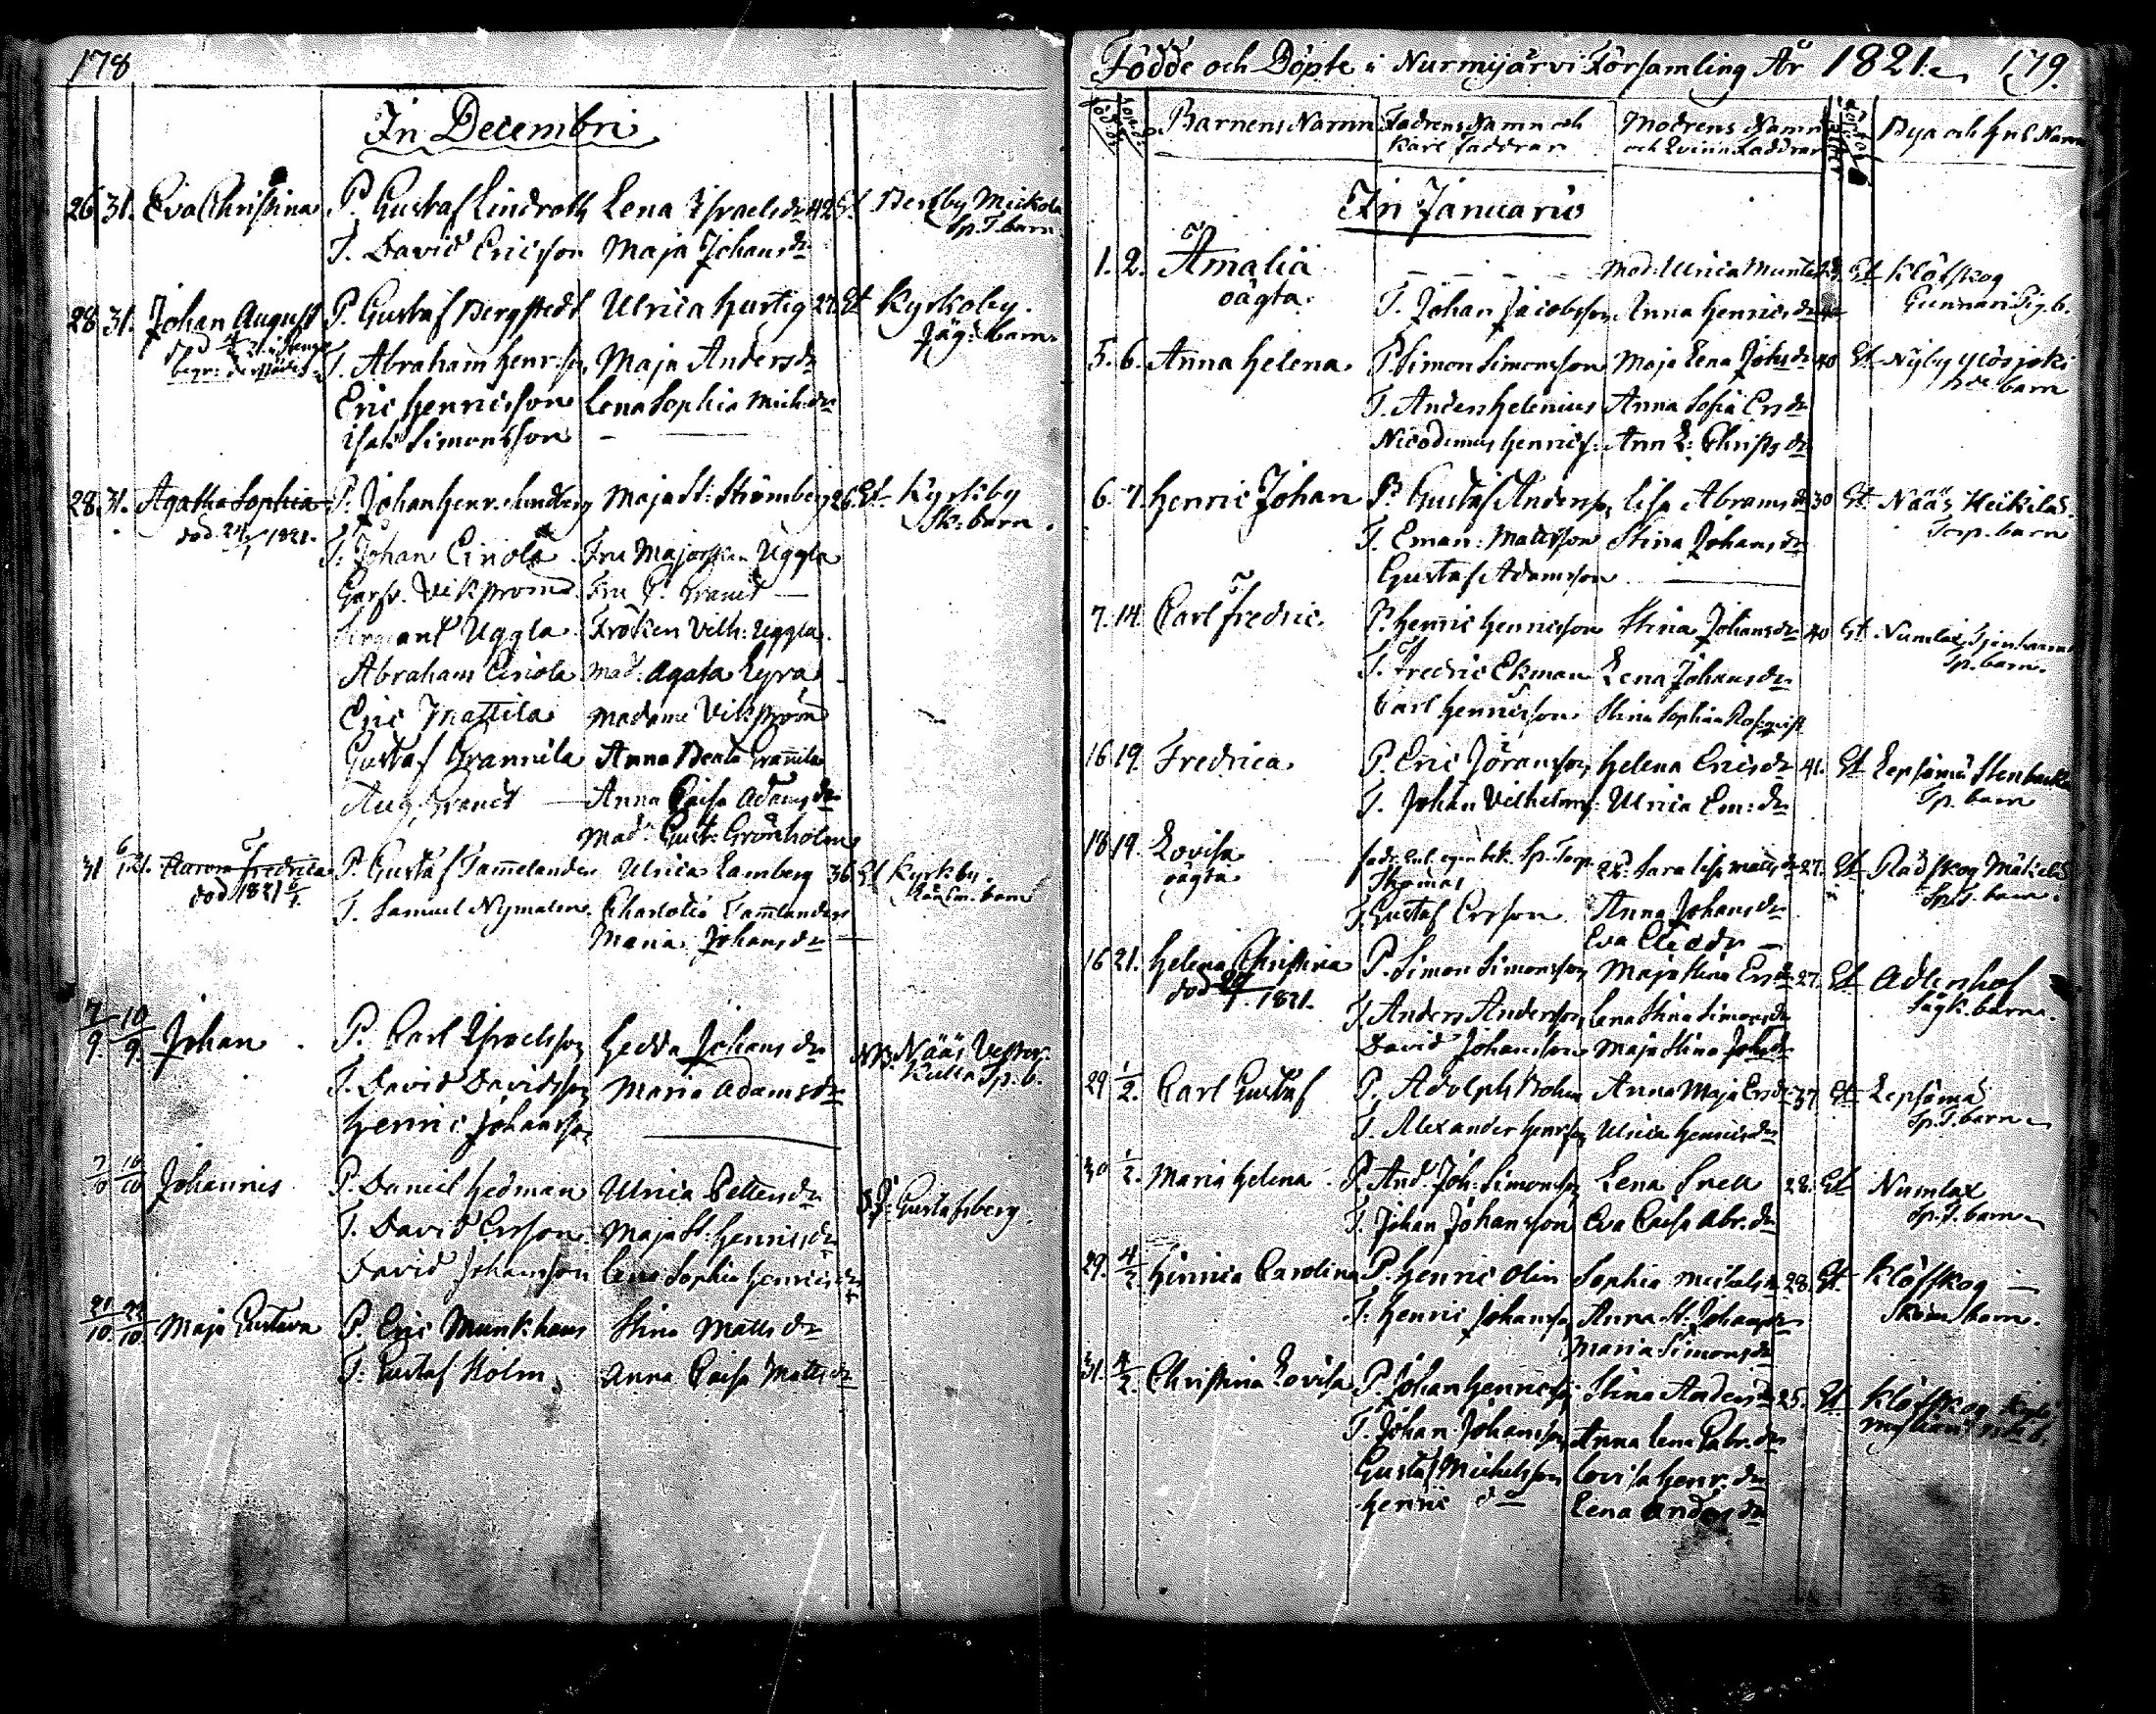 178
In Decembri
26 31. Eva Christina P. Gustaf Lindroth Lena Israels dr 42 Et Perttby Mickola
Sp. T. barn
T. David Ericsson Maja Johans dr
28 31. Johan August P. Gustaf Bergstedt Ulrica Hurtig 27. Et Kyrkoby.
Jäg: barn.
död
begr:
T. Abraham Henr:son Maja Anders dr
Eric Henricsson Lena Sophia Mich: dr
Isak Simonsson —
28. 31. Agatha Sophia P. Johan Henr. Maja St: Strömberg 26. Et. Kyrkby
Sk: barn.
död 24/1 1821.
T. Johan Ciriola Fru Majorskan Uggla
Vikström Fru Brandt —
Sergeant Uggla Fröken Vilh: Uggla.
Abraham Ciriola Mad. Agata Lyra
Eric Mattila Madame Vikström
Gustaf Brannila Anna Beata
Aug. Brandt — Anna Caisa Adams dr
Mad. Gust: Grönholm
31 6/1 21. Aurora Fredrica P. Gustaf Tam̄elander Ulrica Lamberg 36 Et Kyrkby.
barn
död 1821
T. Samuel Nyman Charlotta Tam̄lander
Maria Johans dr —
7/9. 10/9. Johan P. Carl Israelsson Hedda Johans dr NB. Nääs Vester
Kulla Sp. b.
T. David Davidsson Maria Adams dr
Henric Johansson —
7/10 10/10 Johannes P. Daniel Hedman Ulrica Petters dr Gustafsberg
T. David Ersson Maja St: Henrics dr
David Johansson Lena Sophia Henrics dr
21/10. 22/10. Maja Gustava P. Eric Munkhaus Stina Matts dr
T. Gustaf Holm Anna Caisa Matts dr
Födde och Döpte i Nurmijärvi Församling År 1821. 179.
Barnens Namn Fadrens Namn och Modrens Namn Bya och Hus Namn
Karl Faddrar och Qvinn Faddrar
In Januario
1. 2. Amalia — — — — Mod: Ulrica 23. Et Klöfskog
oägta. Gunnari Pig. b.
T. Johan Jacobsson Anna Henrics dr
5. 6. Anna Helena. P. Simon Simonsson Maja Lena Johs dr 40 Et Nyby Ylösjoki
barn
T. Anders Helenius Anna Sofia Ers dr
Nicodemus Henrics: Ann L: Christs dr
6. 7. Henric Johan P. Gustaf Anderss. Lisa Abrams dr 30 Et Nääs Heikilä
Torp. barn
T. Eman: Mattsson Stina Johans dr
Gustaf Adamsson —
7. 14. Carl Fredric. P. Henric Henricsson Stina Johans dr 40 Et Numlax
Sp. barn.
T. Fredric Ekman Lena Johans dr
Carl Henricsson Stina Sophia Rosqvist
16 19. Fredrica P. Eric Jöransson Helena Erics dr 41. Et Lepsämä Stenbacka
Sp. barn
T. Johan Vilhelms: Ulrica Em: dr
18 19. Lovisa fadr. enl. egen bek. Sp. Torp. Sara Lisa Matts dr 27. Et Rådskog Mäkelä
oägta Thomas Sp. T. barn.
T. Gustaf Ersson Anna Johans dr
Eva —
16 21. Helena Christina P. Simon Simonsson Maja Stina Ers dr 27. Et Adlershof
Sågk. barn.
död 1821.
T. Anders Andersson Lena Stina Simons dr
David Johansson Maja Stina Johs dr
29 1/2. Carl Gustaf P. Adolph Bohm Anna Maja Ers dr 37 Et Lepsämä
Sp. T. barn
T. Alexander Henrsson Ulrica Henrics dr
30 1/2. Maria Helena. P. And. Joh. Simonsson Lena Snell 28. Et Numlax
Sp. T. barn
T. Johan Johansson Eva Caisa Abr. dr
29. 4/2 Henrica Carolina P. Henric Olin Sophia Michels dr 28. Et Klöfskog —
Skom barn.
T. Henric Johansson Anna St: Johans dr
Maria Simons dr
31. 4/2. Christina Lovisa P. Johan Henricss. Stina Anders dr 25. Et Klöfskog
T. Johan Johansson Anna Lena Gabr. dr
Gustaf Michelsson Lovisa Henr. dr
Henric do Lena Anders dr